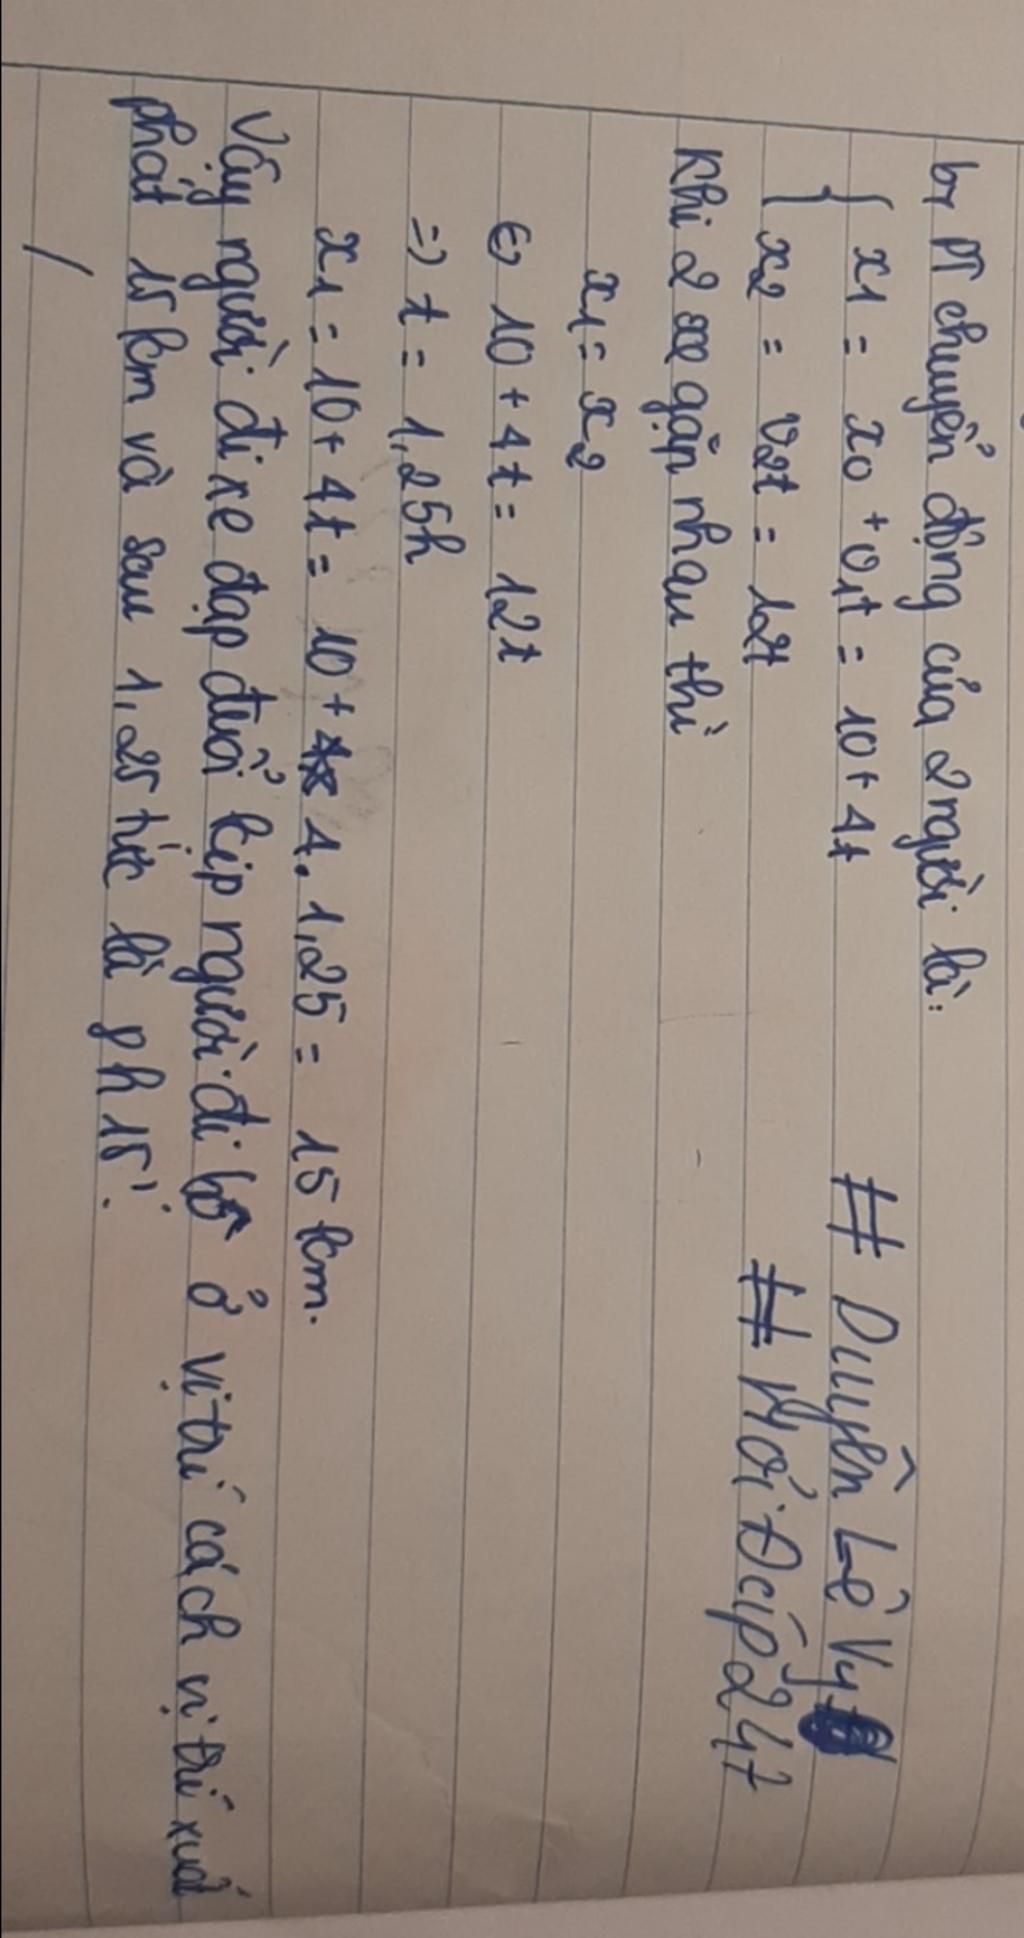 b, PT chuyển động của 2 người là:
{ x1 = x0 + v1t = 10 + 4t
x2 = v2t = 12t
# Duyên Lê Vy
# HỏiĐáp247
Khi 2 xe gặp nhau thì
x1 = x2
<=> 10 + 4t = 12t
=> t = 1,25h
x1 = 10 + 4t = 10 + 4. 1,25 = 15 km.
Vậy người đi xe đạp đuổi kịp người đi bộ ở vị trí cách vị trí xuất
phát 15 km và sau 1,25 tức là 8h15'.